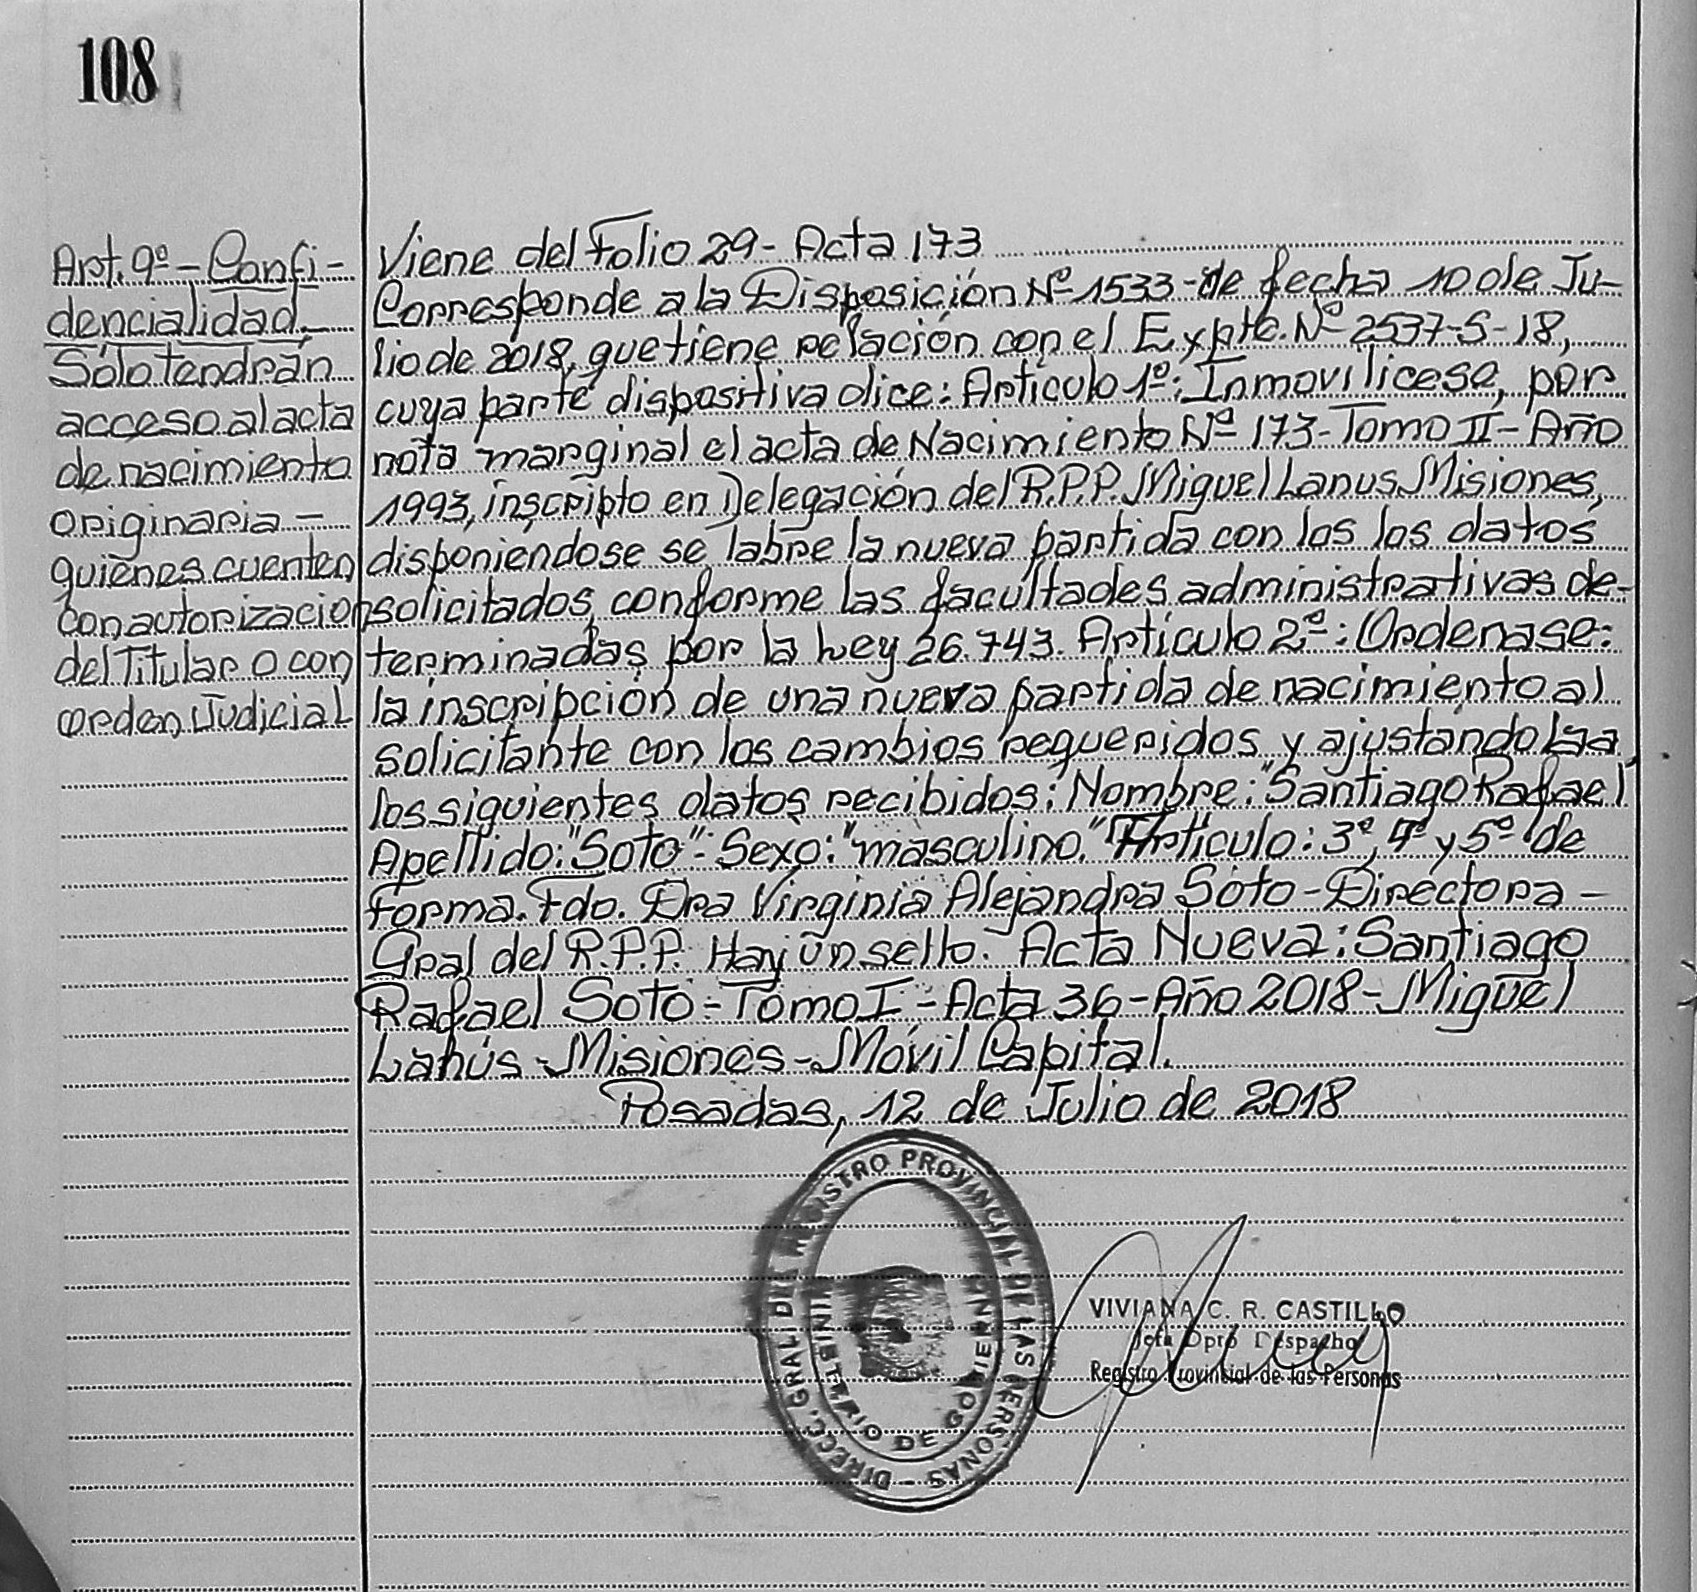 108
Art. 9º - Confi-
dencialidad.
Sólo tendrán
acceso al acta
de nacimiento
originaria -
quienes cuenten
con autorizacion
del Titular o con
orden Judicial
Viene del Folio 29 - Acta 173
Corresponde a la Disposición Nº 1533 - de fecha 10 de Ju-
lio de 2018, que tiene relación con el Expte. Nº 2537-S-18,
cuya parte dispositiva dice: Artículo 1º: Inmovilicese, por
nota marginal el acta de Nacimiento Nº 173 - Tomo II - Año
1993, inscripto en Delegación del R.P.P. Miguel Lanus, Misiones,
disponiéndose se labre la nueva partida con los los datos
solicitados, conforme las facultades administrativas de-
terminadas por la Ley 26.743. Artículo 2º: Ordenase:
la inscripción de una nueva partida de nacimiento al
solicitante con los cambios requeridos y ajustándola a
los siguientes datos recibidos: Nombre: "Santiago Rafael"
Apellido: "Soto": Sexo: "masculino." Artículo: 3º, 4º y 5º de
Forma. Fdo. Dra Virginia Alejandra Soto - Directora -
Gral del R.P.P. Hay un sello. Acta Nueva: Santiago
Rafael Soto - Tomo I - Acta 36 - Año 2018 - Miguel
Lanús - Misiones - Móvil Capital.
Posadas, 12 de Julio de 2018
DIRECC. GRAL. DEL REGISTRO PROVINCIAL DE LAS PERSONAS -
MINISTERIO DE GOBIERNO
VIVIANA C. R. CASTILLO
Jefa Dpto Despacho
Registro Provincial de las Personas